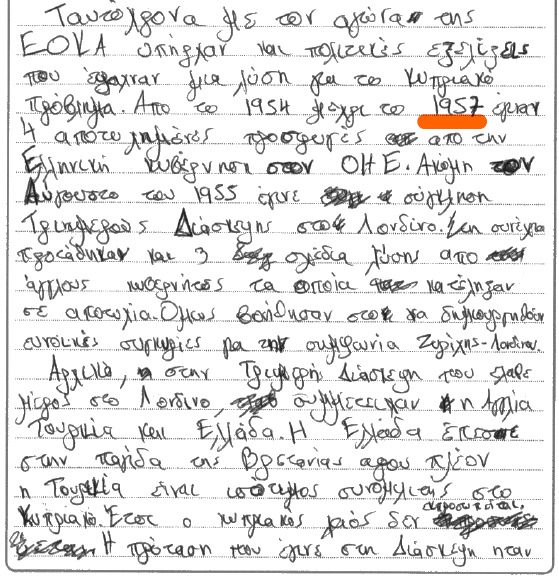 Ταυτόχρονα με τον αγώνα της
ΕΟΚΑ υπήρχαν και πολιτικές εξελίξεις
που έφερναν μια λύση για το Κυπριακό
Πρόβλημα. Από το 1954 μέχρι το 1957 έγιναν
4 αποτυχημένες προσφυγές από την
Ελληνική κυβέρνηση στον ΟΗΕ. Ακόμη τον
Αύγουστο του 1955 έγινε σύγκληση
Τριμερούς Διάσκεψης στο Λονδίνο. Στη συνέχεια
προτάθηκαν και 3 σχέδια λύσης από
άγγλους κυβερνήτες τα οποία κατέληξαν
σε αποτυχία. Όμως βοήθησαν στο να δημιουργηθούν
ευνοϊκές συγκυρίες για την συμφωνία Ζυρίχης-Λονδίνου.
Αρχικά, στην Τριμερή Διάσκεψη που έλαβε
μέρος στο Λονδίνο, συμμετείχαν η Αγγλία
Τουρκία και Ελλάδα. Η Ελλάδα έπεσε
στην παγίδα της Βρετανίας αφού πλέον
η Τουρκία είναι ισότιμος συνομιλητής στο
Κυπριακό. Έτσι ο κυπριακός λαός δεν
Η πρόταση που έγινε στη Διάσκεψη ήταν